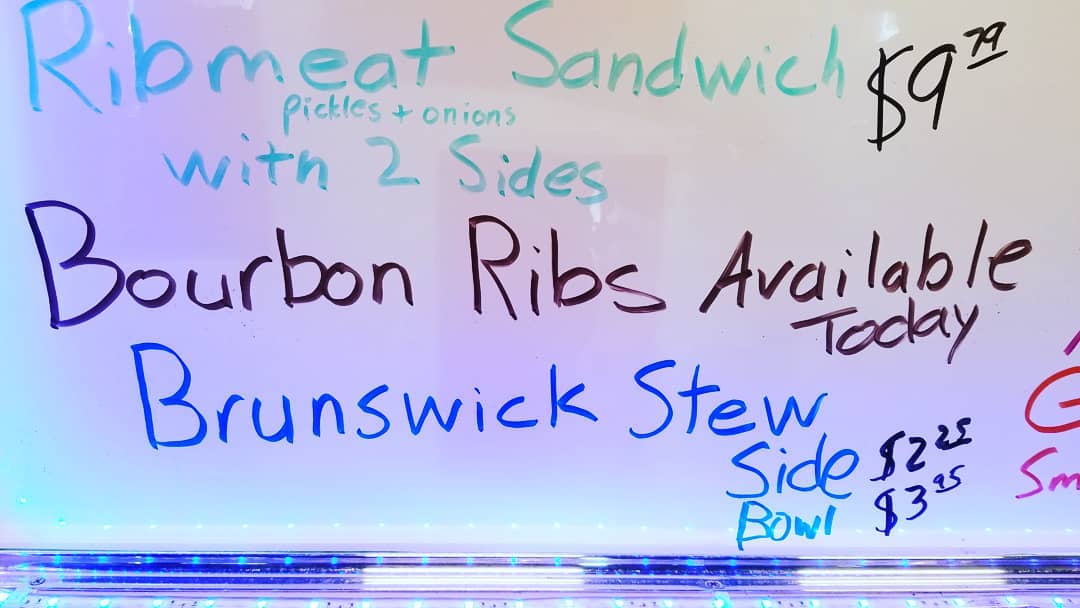 Ribmeat Sandwich $9.79
pickles + onions
with 2 Sides
Bourbon Ribs Available
Today
Brunswick Stew
Side $2.25
Bowl $3.95
G
Sm